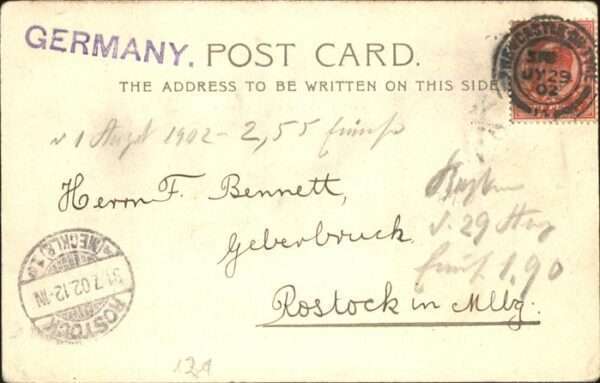 GERMANY. POST CARD.
THE ADDRESS TO BE WRITTEN ON THIS SIDE
NEWCASTLE-ON-TYNE
JY 29
02
1 August 1902 - 2,55
Herrn F. Bennett,
Geberbruck.
29 Aug
1,90
Rostock in Mllbg.
ROSTOCK (MECKLB) 1
31.7.02.12-1N